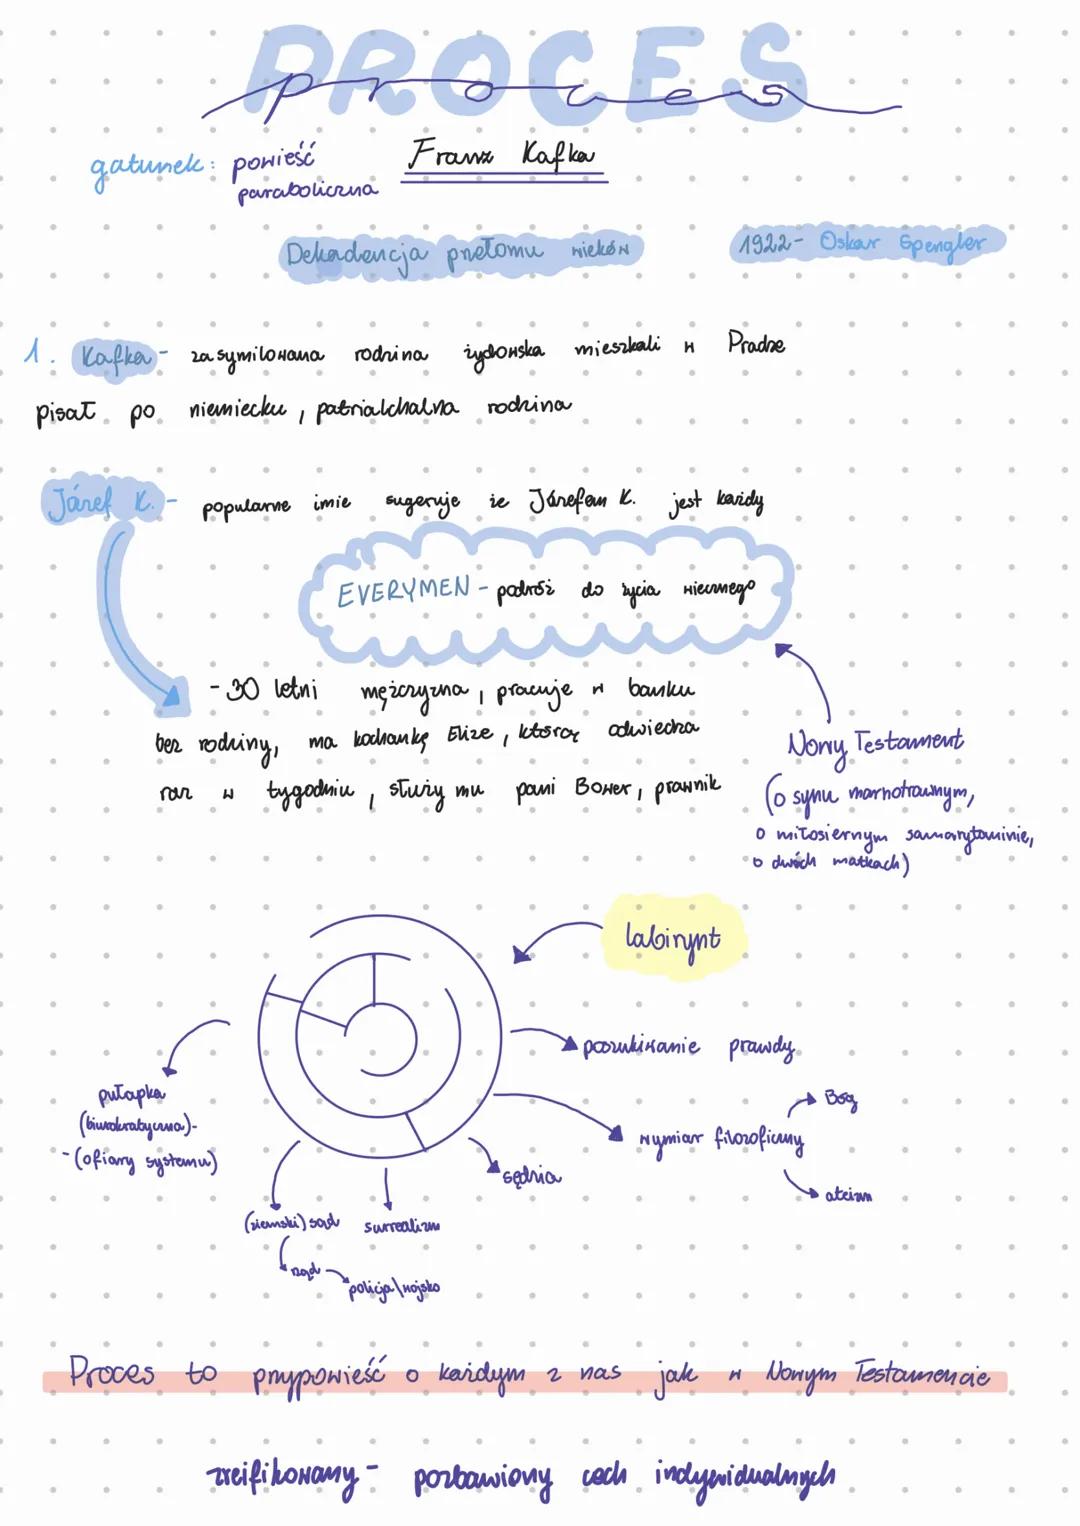 PROCES
proces
gatunek: powieść
paraboliczna
Franz Kafka
Dekadencja przełomu wieków
1922- Oskar Spengler
1. Kafka- zasymilowana rodzina żydowska mieszkali w Pradze
pisał po niemiecku, patrialchalna rodzina
Józef K.- popularne imie sugeruje że Józefem K. jest każdy
EVERYMEN - podróż do życia wiecznego
- 30 letni mężczyzna, pracuje w banku
bez rodziny, ma kochankę Elize, którą odwiedza
raz w tygodniu, służy mu pani Bower, prawnik
Nowy Testament
(o synu marnotrawnym,
o miłosiernym samarytaninie,
o dwóch matkach)
labirynt
poszukiwanie prawdy
wymiar filozoficzny
Bóg
ateizm
sędzia
surrealizm
(ziemski) sąd
rząd
policja\wojsko
pułapka
(biurokratyczna)-
-(ofiary systemu)
Proces to przypowieść o każdym z nas jak w Nowym Testamencie
zreifikowany - pozbawiony cech indywidualnych